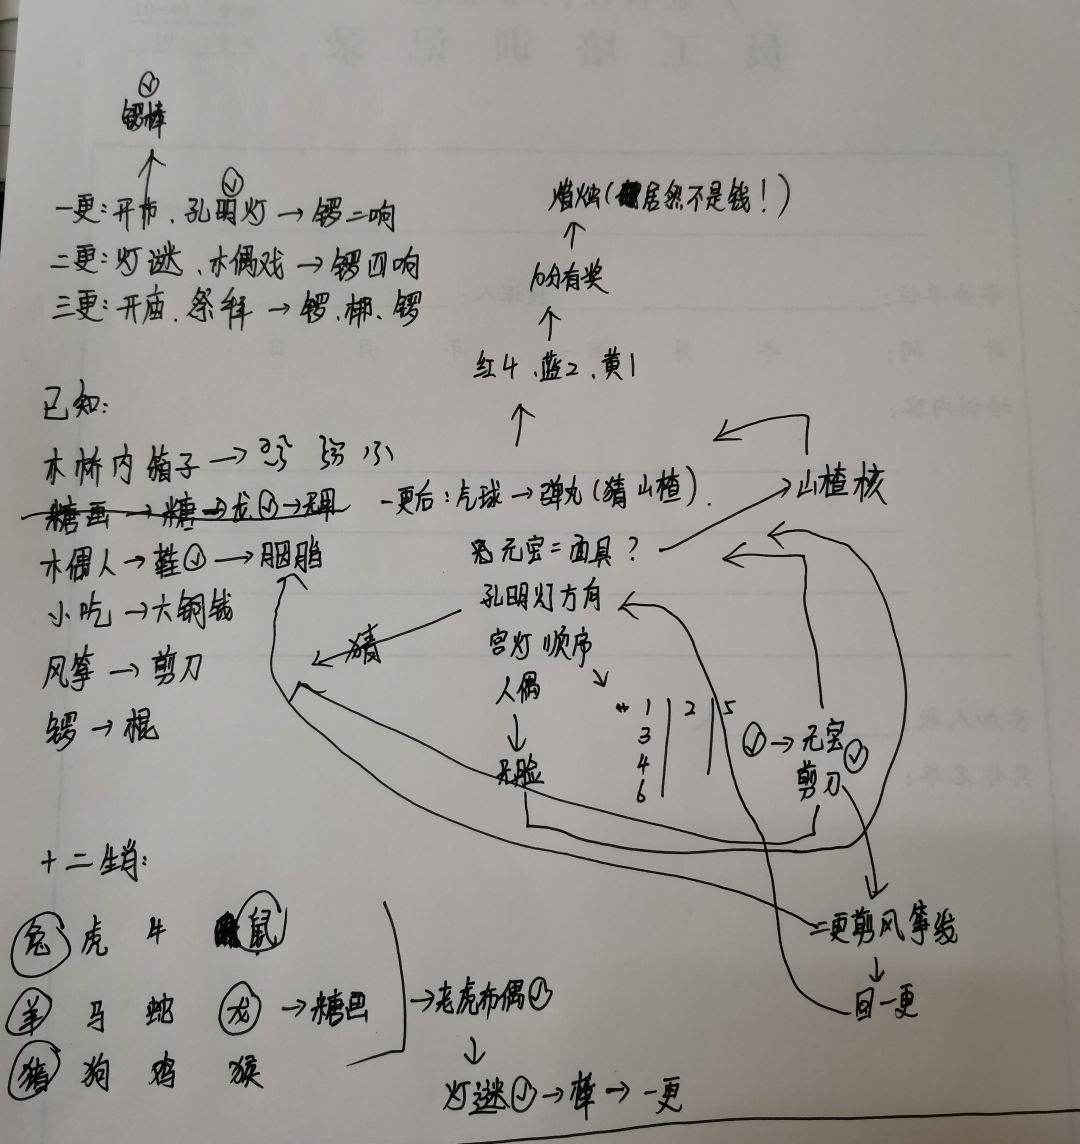 员工培训记录
锣棒
一更:开市、孔明灯→锣二响
二更:灯谜、木偶戏→锣四响
三更:开庙、祭拜→锣、梆、锣
焰烛(居然不是钱!)
10分有奖
红4、蓝2、黄1
已知:
木桥内箱子→
糖画→糖→龙
一更后:气球→弹丸(猜山楂).
山楂核
木偶人→鞋→胭脂
元宝=面具?
小吃→六铜钱
孔明灯方向
猜
宫灯顺序
风筝→剪刀
人偶
锣→棍
无脸
1 2 5
3
4
6
→元宝
剪刀
十二生肖:
兔 虎 牛 鼠
羊 马 蛇 龙→糖画
猪 狗 鸡 猴
→老虎布偶
灯谜→棒→一更
二更剪风筝线
回一更